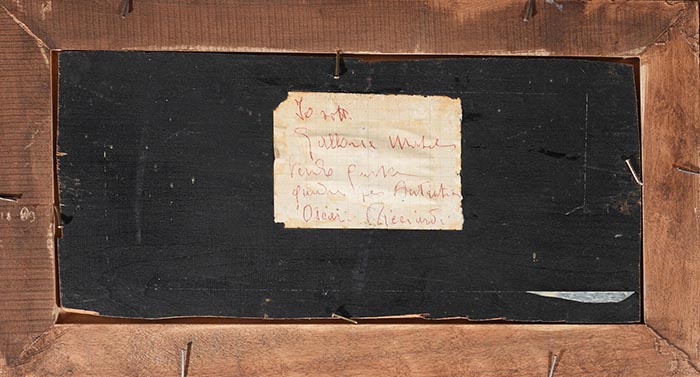 Io sott.
Gallonie Michele
Vendo questo
quadro per Autentico
Oscar Ricciardi